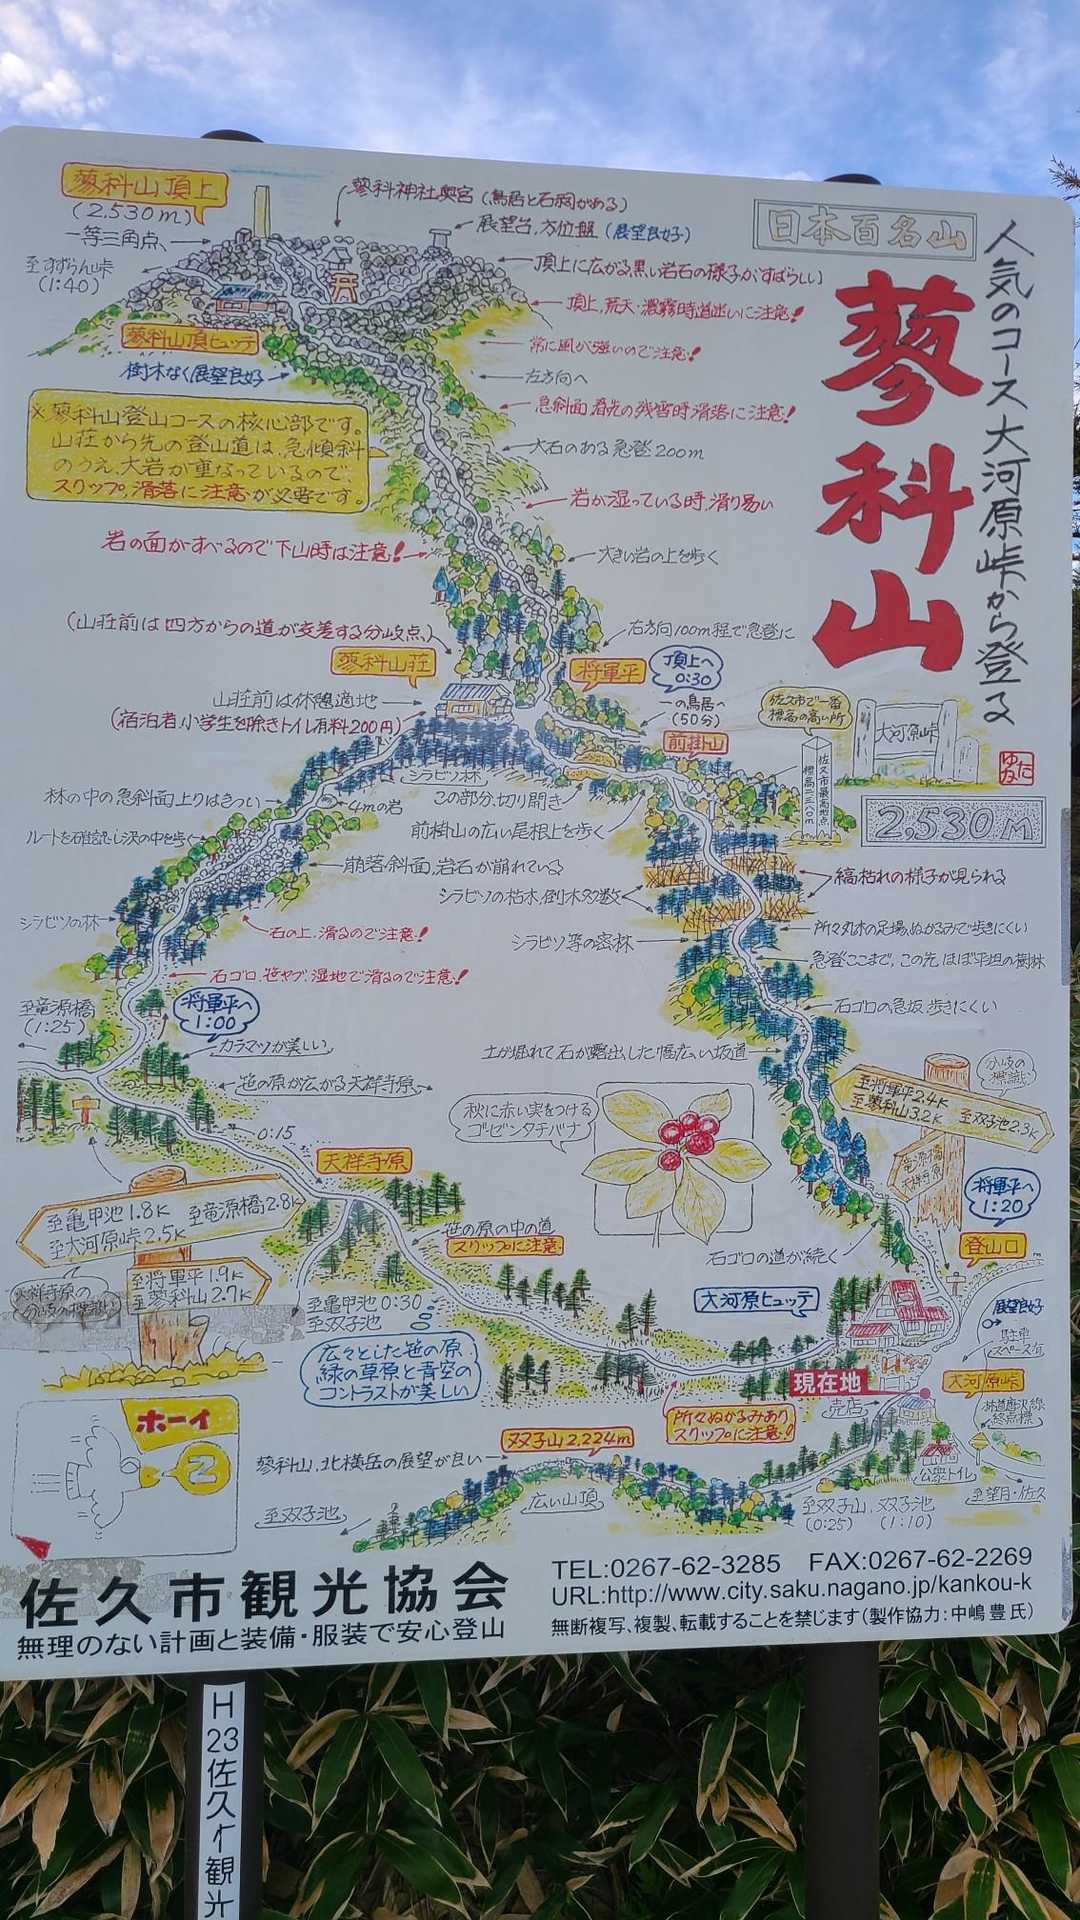 日本百名山
人気のコース大河原峠から登る
蓼科山
2,530M
蓼科山頂上
(2.530m)
一等三角点、
至すずらん峠
(1:40)
蓼科神社奥宮(鳥居と石祠がある)
展望台,方位盤(展望良好)
頂上に広がる,黒い岩石の様子がすばらしい
頂上,荒天・濃霧時道迷いに注意!
常に風が強いので注意!
左方向へ
急斜面,春先の残雪時滑落に注意!
大石のある急登200m
岩が湿っている時,滑り易い
大きい岩の上を歩く
右方向100m程で急登に
蓼科山頂ヒュッテ
樹木なく展望良好
※蓼科山登山コースの核心部です。
山荘から先の登山道は,急傾斜
のうえ,大岩が重なっているので,
スリップ,滑落に注意が必要です。
岩の面がすべるので下山時は注意!
(山荘前は四方からの道が交差する分岐点)
蓼科山荘
山荘前は休憩適地
(宿泊者,小学生を除きトイレ有料200円)
将軍平
頂上へ
0:30
一の鳥居へ
(50分)
前掛山
佐久市で一番
標高の高い所
佐久市最高地点
標高二三八〇m
大河原峠
シラビソ林
4mの岩
この部分,切り開き
前掛山の広い尾根上を歩く
林の中の急斜面上りはきつい
ルートを確認し沢の中を歩く
崩落・斜面,岩石が崩れている
シラビソの林
石の上,滑るので注意!
石ゴロ,笹ヤブ,湿地で滑るので注意!
シラビソの枯木,倒木多数
縞枯れの様子が見られる
シラビソ等の密林
所々丸木の足場,ぬかるみで歩きにくい
急登ここまで,この先ほぼ平坦の樹林
石ゴロの急坂,歩きにくい
土が掘れて石が露出した幅広い坂道
至竜源橋
(1:25)
将軍平へ
1:00
カラマツが美しい
笹の原が広がる天祥寺原
0:15
天祥寺原
秋に赤い実をつける
ゴゼンタチバナ
分岐の
標識
至将軍平2.4K
至蓼科山3.2K
至双子池2.3K
竜源橋
天祥寺原
将軍平へ
1:20
登山口
石ゴロの道が続く
至亀甲池1.8K
至大河原峠2.5K
至竜源橋2.8K
至将軍平1.9K
至蓼科山2.7K
天祥寺原の
分岐の標識
笹の原の中の道
スリップに注意
至亀甲池0:30
至双子池
広々とした笹の原,
緑の草原と青空の
コントラストが美しい
大河原ヒュッテ
展望良好
駐車
スペース有
現在地
売店
大河原峠
林道唐沢線
終点標
公衆トイレ
至望月・佐久
所々ぬかるみあり
スリップに注意!
双子山2.224m
蓼科山,北横岳の展望が良い
広い山頂
至双子池
至双子山,双子池
(0:25) (1:10)
ホーイ
佐久市観光協会
無理のない計画と装備・服装で安心登山
TEL:0267-62-3285 FAX:0267-62-2269
URL:http://www.city.saku.nagano.jp/kankou-k
無断複写、複製、転載することを禁じます(製作協力:中嶋 豊 氏)
H
23佐久市観光